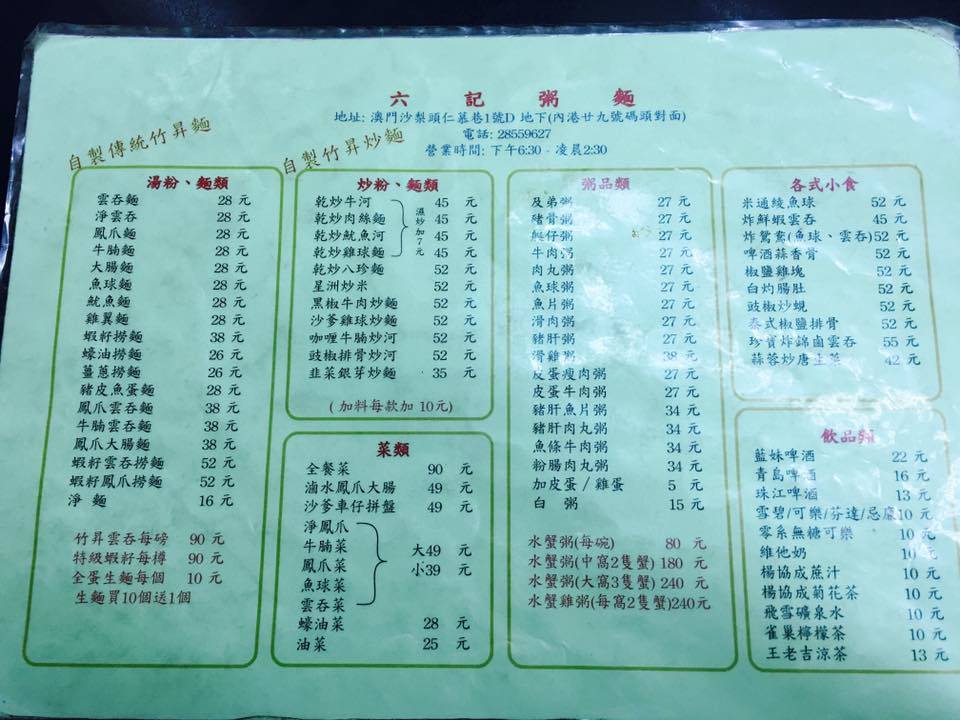 六記粥麵
地址: 澳門沙梨頭仁慕巷1號D 地下(內港廿九號碼頭對面)
電話: 28559627
營業時間: 下午6:30 - 凌晨2:30
自製傳統竹昇麵
自製竹昇炒麵
湯粉、麵類
雲吞麵 28 元
淨雲吞 28 元
鳳爪麵 28 元
牛腩麵 28 元
大腸麵 28 元
魚球麵 28 元
魷魚麵 28 元
雞翼麵 28 元
蝦籽撈麵 38 元
蠔油撈麵 26 元
薑蔥撈麵 26 元
豬皮魚蛋麵 28 元
鳳爪雲吞麵 38 元
牛腩雲吞麵 38 元
鳳爪大腸麵 38 元
蝦籽雲吞撈麵 52 元
蝦籽鳳爪撈麵 52 元
淨 麵 16 元
竹昇雲吞每磅 90 元
特級蝦籽每樽 90 元
全蛋生麵每個 10 元
生麵買10個送1個
炒粉、麵類
乾炒牛河 45 元
乾炒肉絲麵 45 元
乾炒魷魚河 45 元
乾炒雞球麵 45 元
濕炒加7元
乾炒八珍麵 52 元
星洲炒米 52 元
黑椒牛肉炒麵 52 元
沙爹雞球炒麵 52 元
咖喱牛腩炒河 52 元
豉椒排骨炒河 52 元
韭菜銀芽炒麵 35 元
( 加料每款加 10元)
菜類
全餐菜 90 元
滷水鳳爪大腸 49 元
沙爹車仔拼盤 49 元
淨鳳爪
牛腩菜
鳳爪菜
魚球菜
雲吞菜
大49 元
小39 元
蠔油菜 28 元
油菜 25 元
粥品類
及弟粥 27 元
豬骨粥 27 元
艇仔粥 27 元
牛肉粥 27 元
肉丸粥 27 元
魚球粥 27 元
魚片粥 27 元
滑肉粥 27 元
豬肝粥 27 元
滑雞粥 38 元
皮蛋瘦肉粥 27 元
皮蛋牛肉粥 27 元
豬肝魚片粥 34 元
豬肝肉丸粥 34 元
魚條牛肉粥 34 元
粉腸肉丸粥 34 元
加皮蛋 / 雞蛋 5 元
白 粥 15 元
水蟹粥(每碗) 80 元
水蟹粥(中窩2隻蟹) 180 元
水蟹粥(大窩3隻蟹) 240 元
水蟹雞粥(每窩2隻蟹)240元
各式小食
米通綾魚球 52 元
炸鮮蝦雲吞 45 元
炸鴛鴦(魚球、雲吞)52 元
啤酒蒜香骨 52 元
椒鹽雞塊 52 元
白灼腸肚 52 元
豉椒炒蜆 52 元
泰式椒鹽排骨 52 元
珍寶炸錦鹵雲吞 55 元
蒜蓉炒唐生菜 42 元
飲品類
藍妹啤酒 22 元
青島啤酒 16 元
珠江啤酒 13 元
雪碧/可樂/芬達/忌廉10 元
零系無糖可樂 10 元
維他奶 10 元
楊協成蔗汁 10 元
楊協成菊花茶 10 元
飛雪礦泉水 10 元
雀巢檸檬茶 10 元
王老吉涼茶 13 元